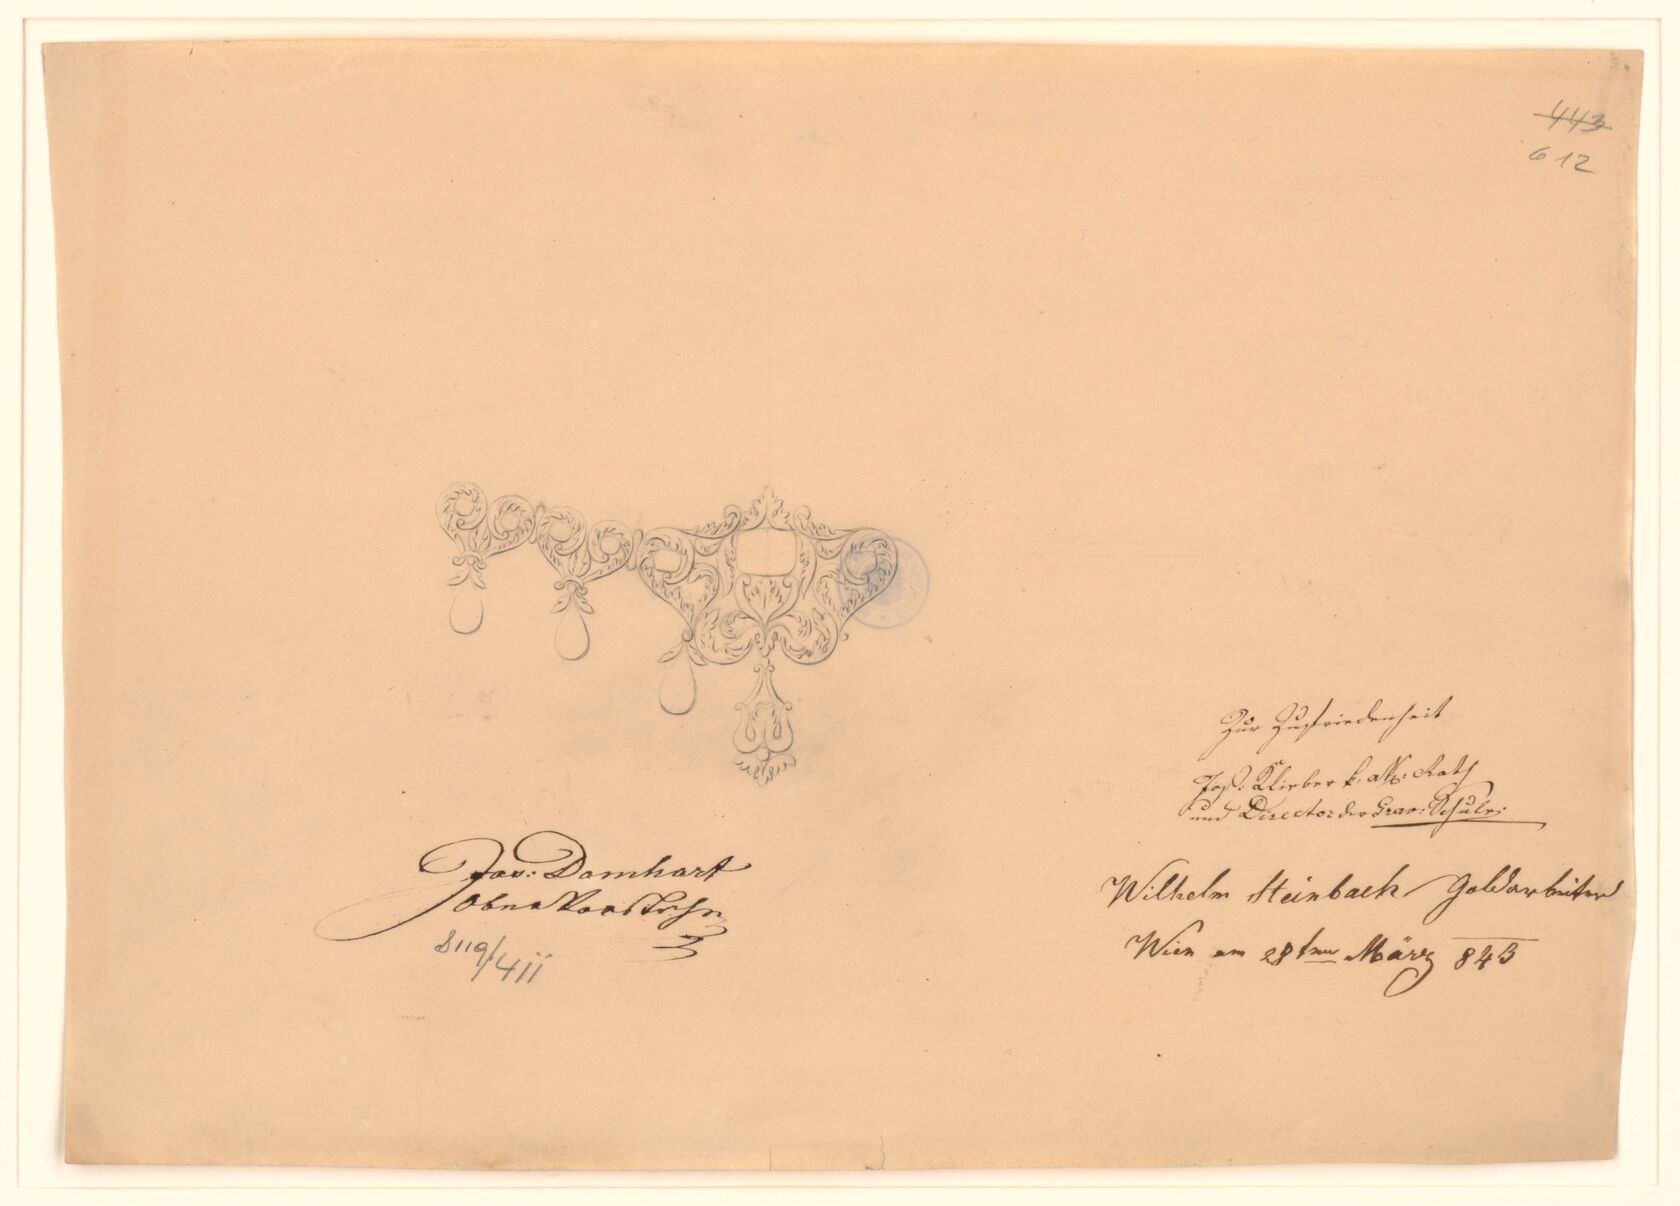 443
612
Zur Zufriedenheit
Jos: Klieber k. ak: Rath
und Director der Grav: Schule
Jos: Domhart
Obervorsteher
8119/411
Wilhelm Steinbach Goldarbeiter
Wien am 28ten März 843